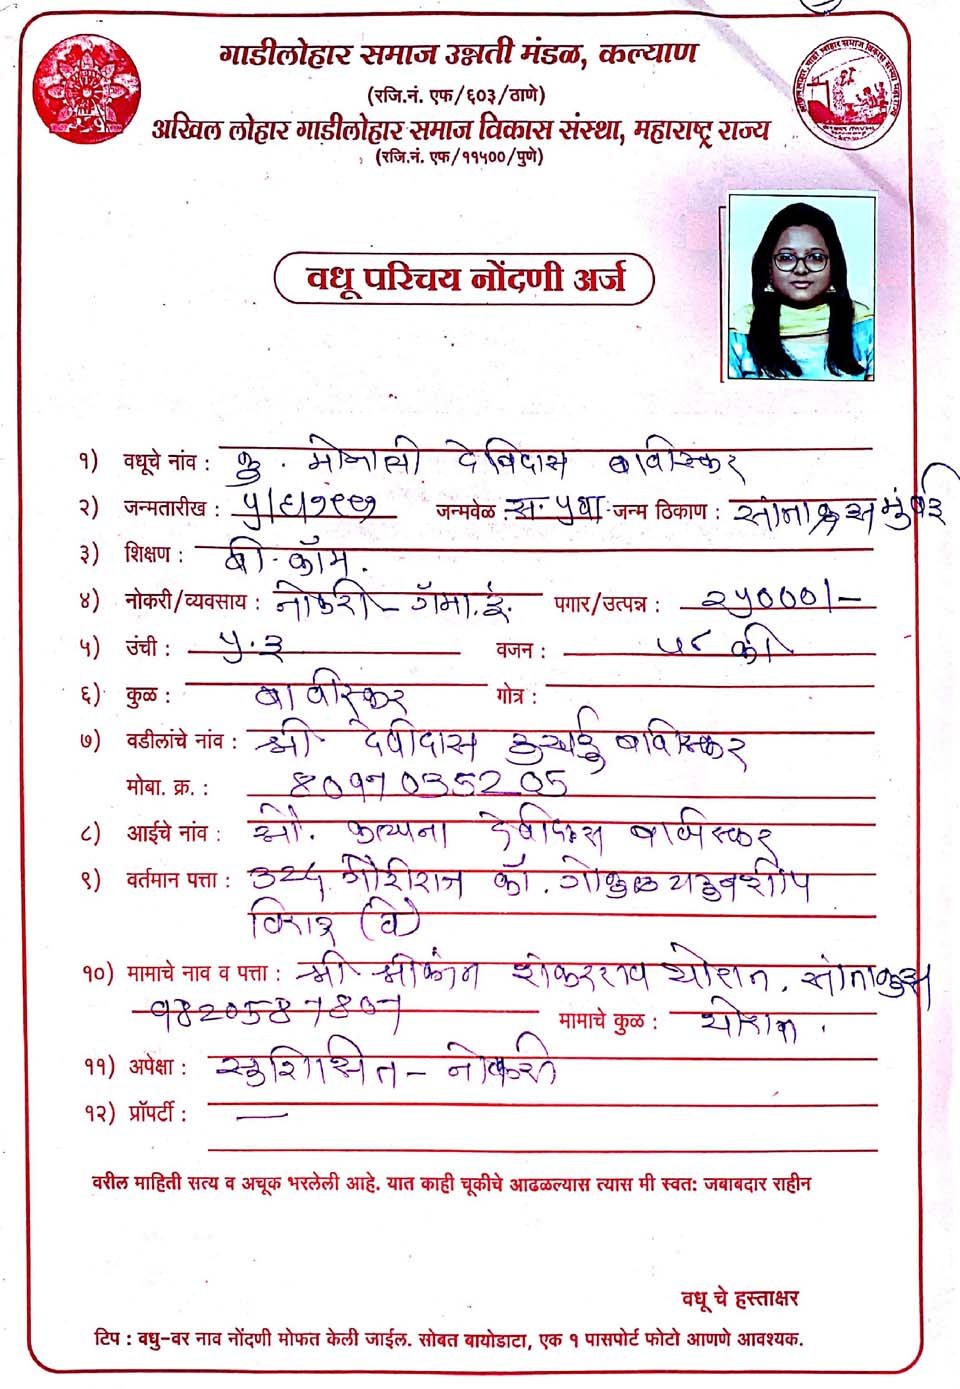 गाडीलोहार समाज उन्नती मंडळ, कल्याण
(रजि.नं. एफ/६०३/ठाणे)
अखिल लोहार गाडीलोहार समाज विकास संस्था, महाराष्ट्र राज्य
(रजि.नं. एफ/११५००/पुणे)
वधू परिचय नोंदणी अर्ज
१) वधूचे नांव : कु. मोनाली देविदास बाविस्कर
२) जन्मतारीख : जन्मवेळ : जन्म ठिकाण : सांताक्रुझ मुंबई
३) शिक्षण : बी. कॉम.
४) नोकरी/व्यवसाय : नोकरी - पगार/उत्पन्न : २५०००/-
५) उंची : ५.३ वजन : ५८ की
६) कुळ : बाविस्कर गोत्र :
७) वडीलांचे नांव : श्री देवीदास बाविस्कर
मोबा. क्र. : 8097035205
८) आईचे नांव : सौ. कल्पना देविदास बाविस्कर
९) वर्तमान पत्ता : गौरीराज कॉ. गोकुळ
विरार (वे)
१०) मामाचे नाव व पत्ता : श्री श्रीकांत थोरात. सांताक्रुझ
9820587807 मामाचे कुळ : थोरात.
११) अपेक्षा : सुशिक्षित - नोकरी
१२) प्रॉपर्टी : —
वरील माहिती सत्य व अचूक भरलेली आहे. यात काही चूकीचे आढळल्यास त्यास मी स्वत: जबाबदार राहीन
वधू चे हस्ताक्षर
टिप : वधु-वर नाव नोंदणी मोफत केली जाईल. सोबत बायोडाटा, एक १ पासपोर्ट फोटो आणणे आवश्यक.